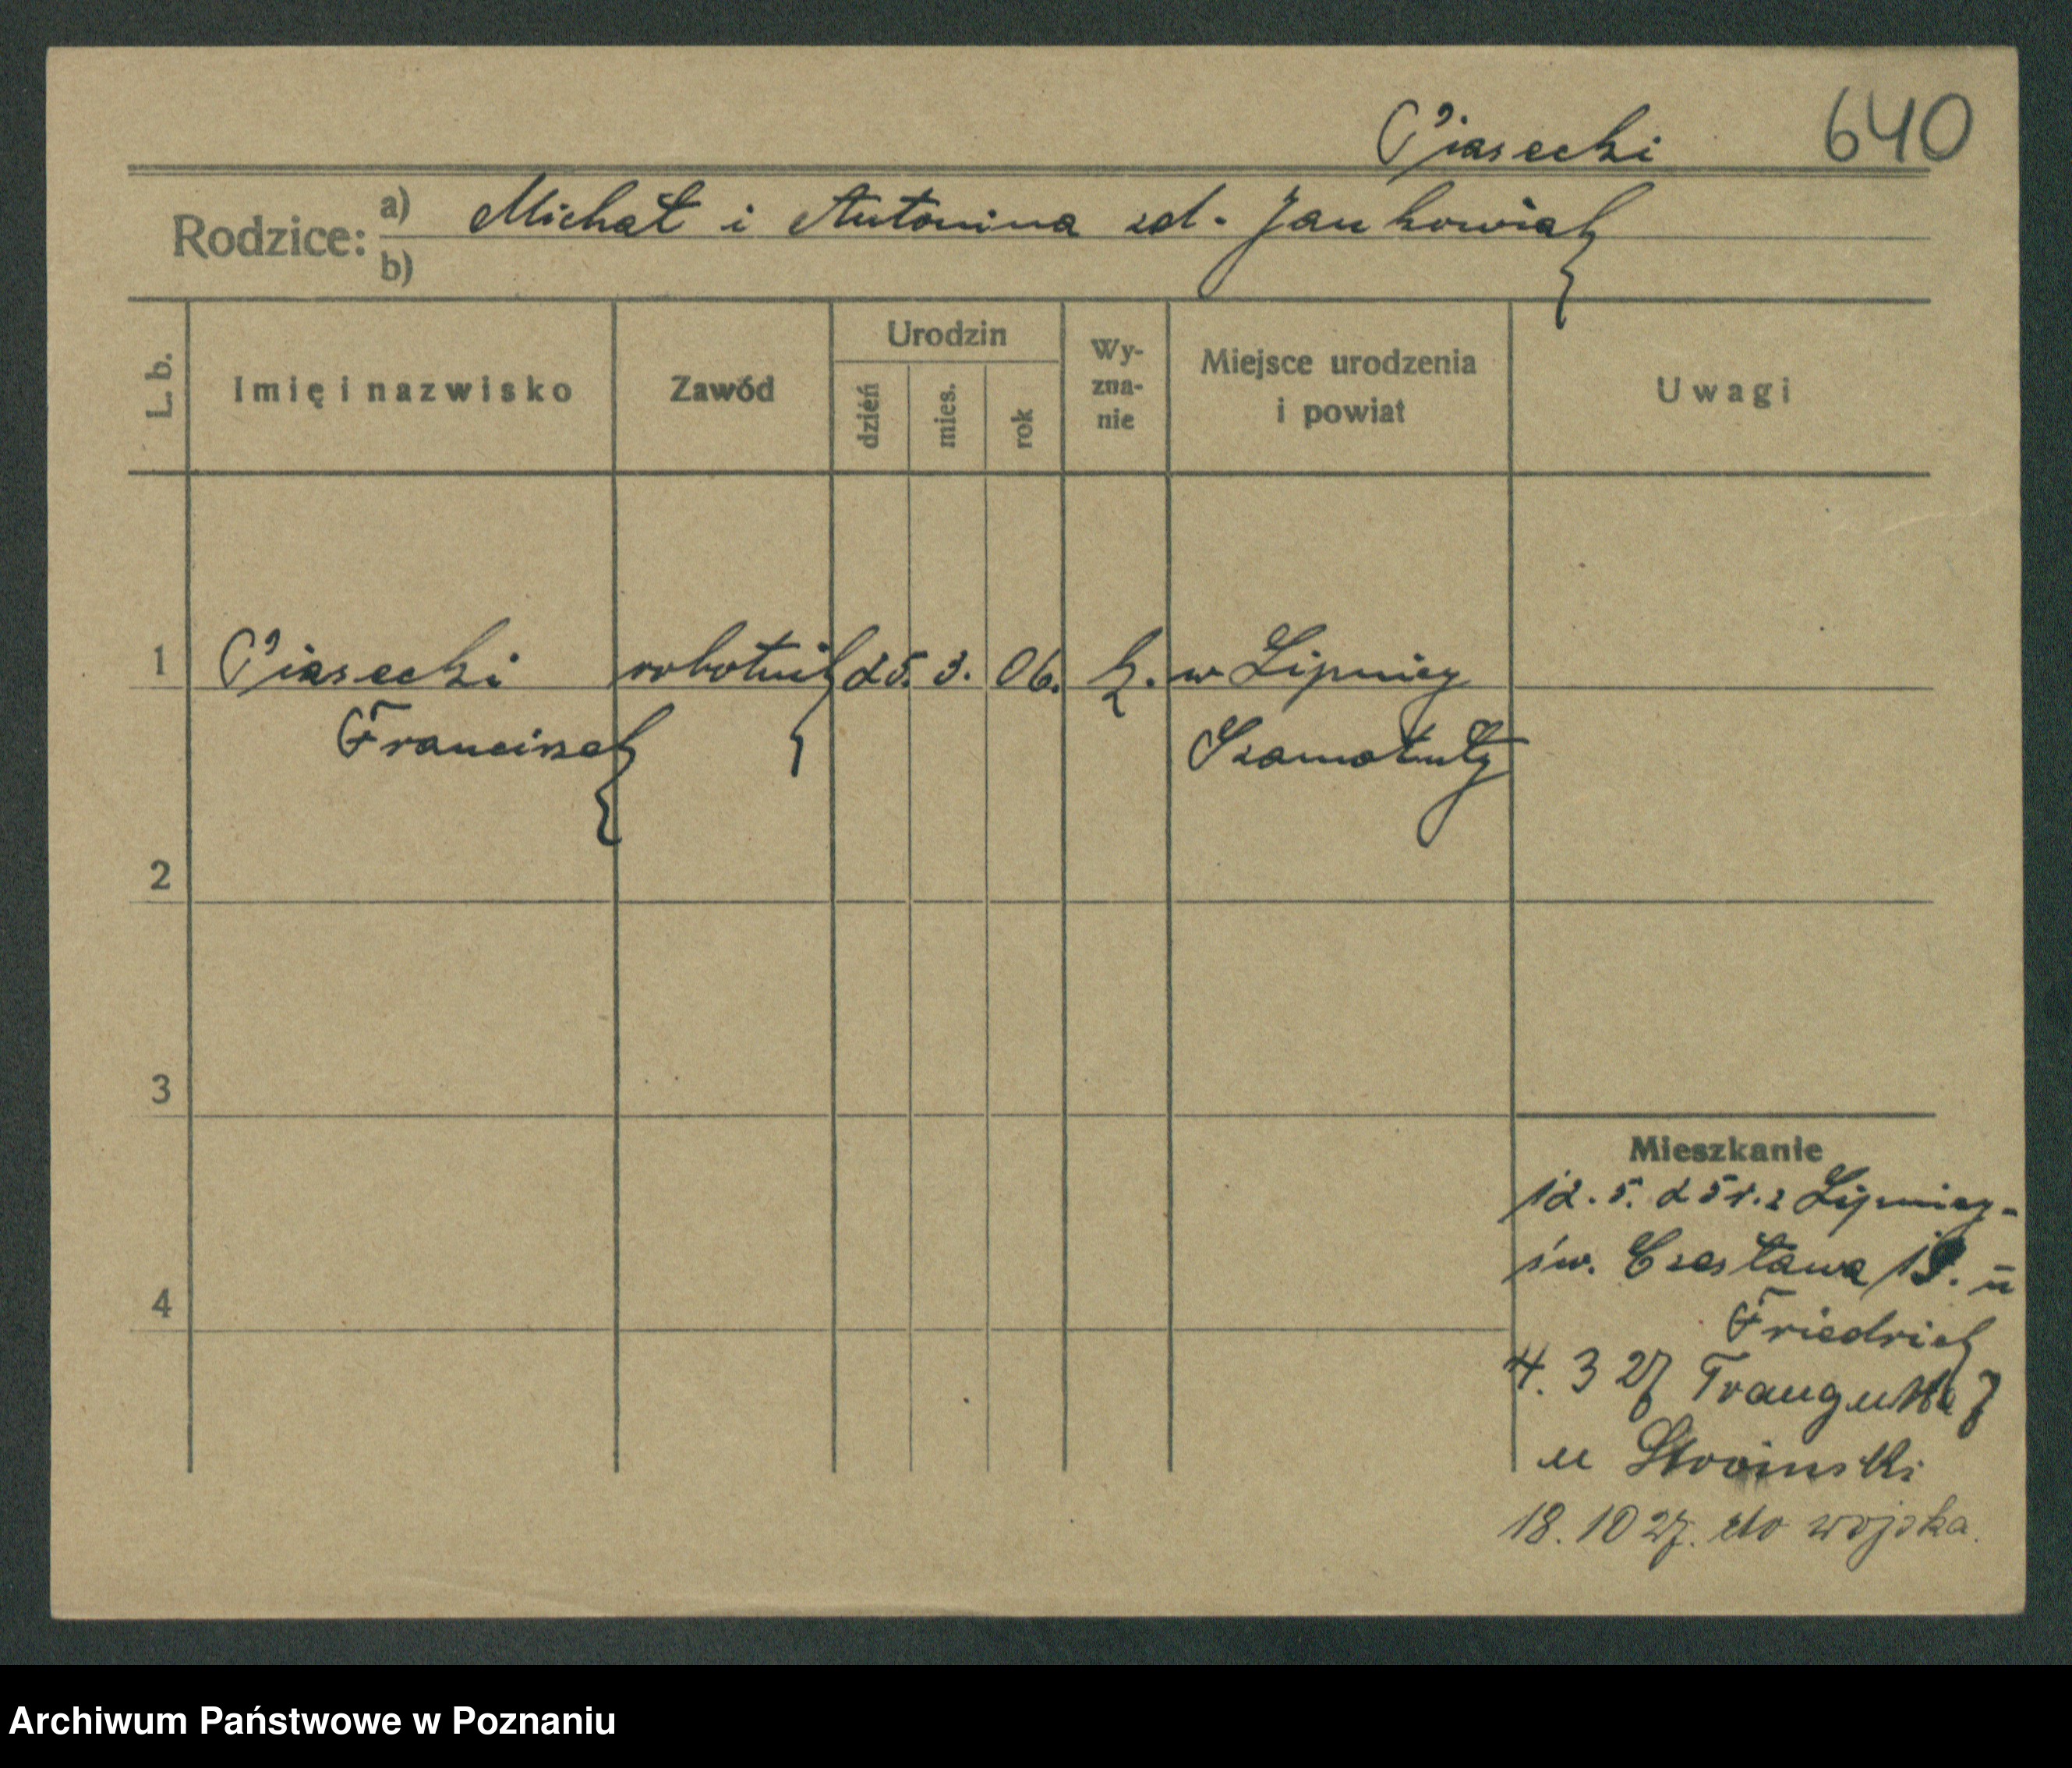 Piasecki 640
Rodzice: a) Michał i Antonina zd. Jankowiak
b)
L. b. Imię i nazwisko Zawód Urodzin dzień mies. rok Wy-zna-nie Miejsce urodzenia i powiat Uwagi
1 Piasecki robotnik 25. 3. 06. k. w Lipnicy
Franciszek Szamotuły
2
3
4
Mieszkanie
12. 5. 25 r. z Lipnicy -
św. Czesława u
Friedrich
4. 3 27 Traugutta 7
u Stroinski
18. 10 27. do wojska.
Archiwum Państwowe w Poznaniu